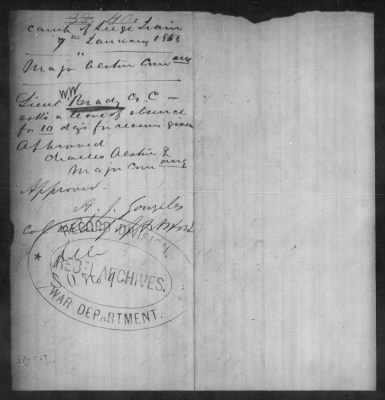 Camp of Siege Train
7th January 1863
Major Alston Com'ang
Lieut W W Ready Co. C -
asks a leave of absence
for 10 dys for reasons given
Approved
Charles Alston Jr
Major Com'ang
Approved.
A. J. Gonzales
Col
RECORD DIVISION
REBEL ARCHIVES.
WAR DEPARTMENT.